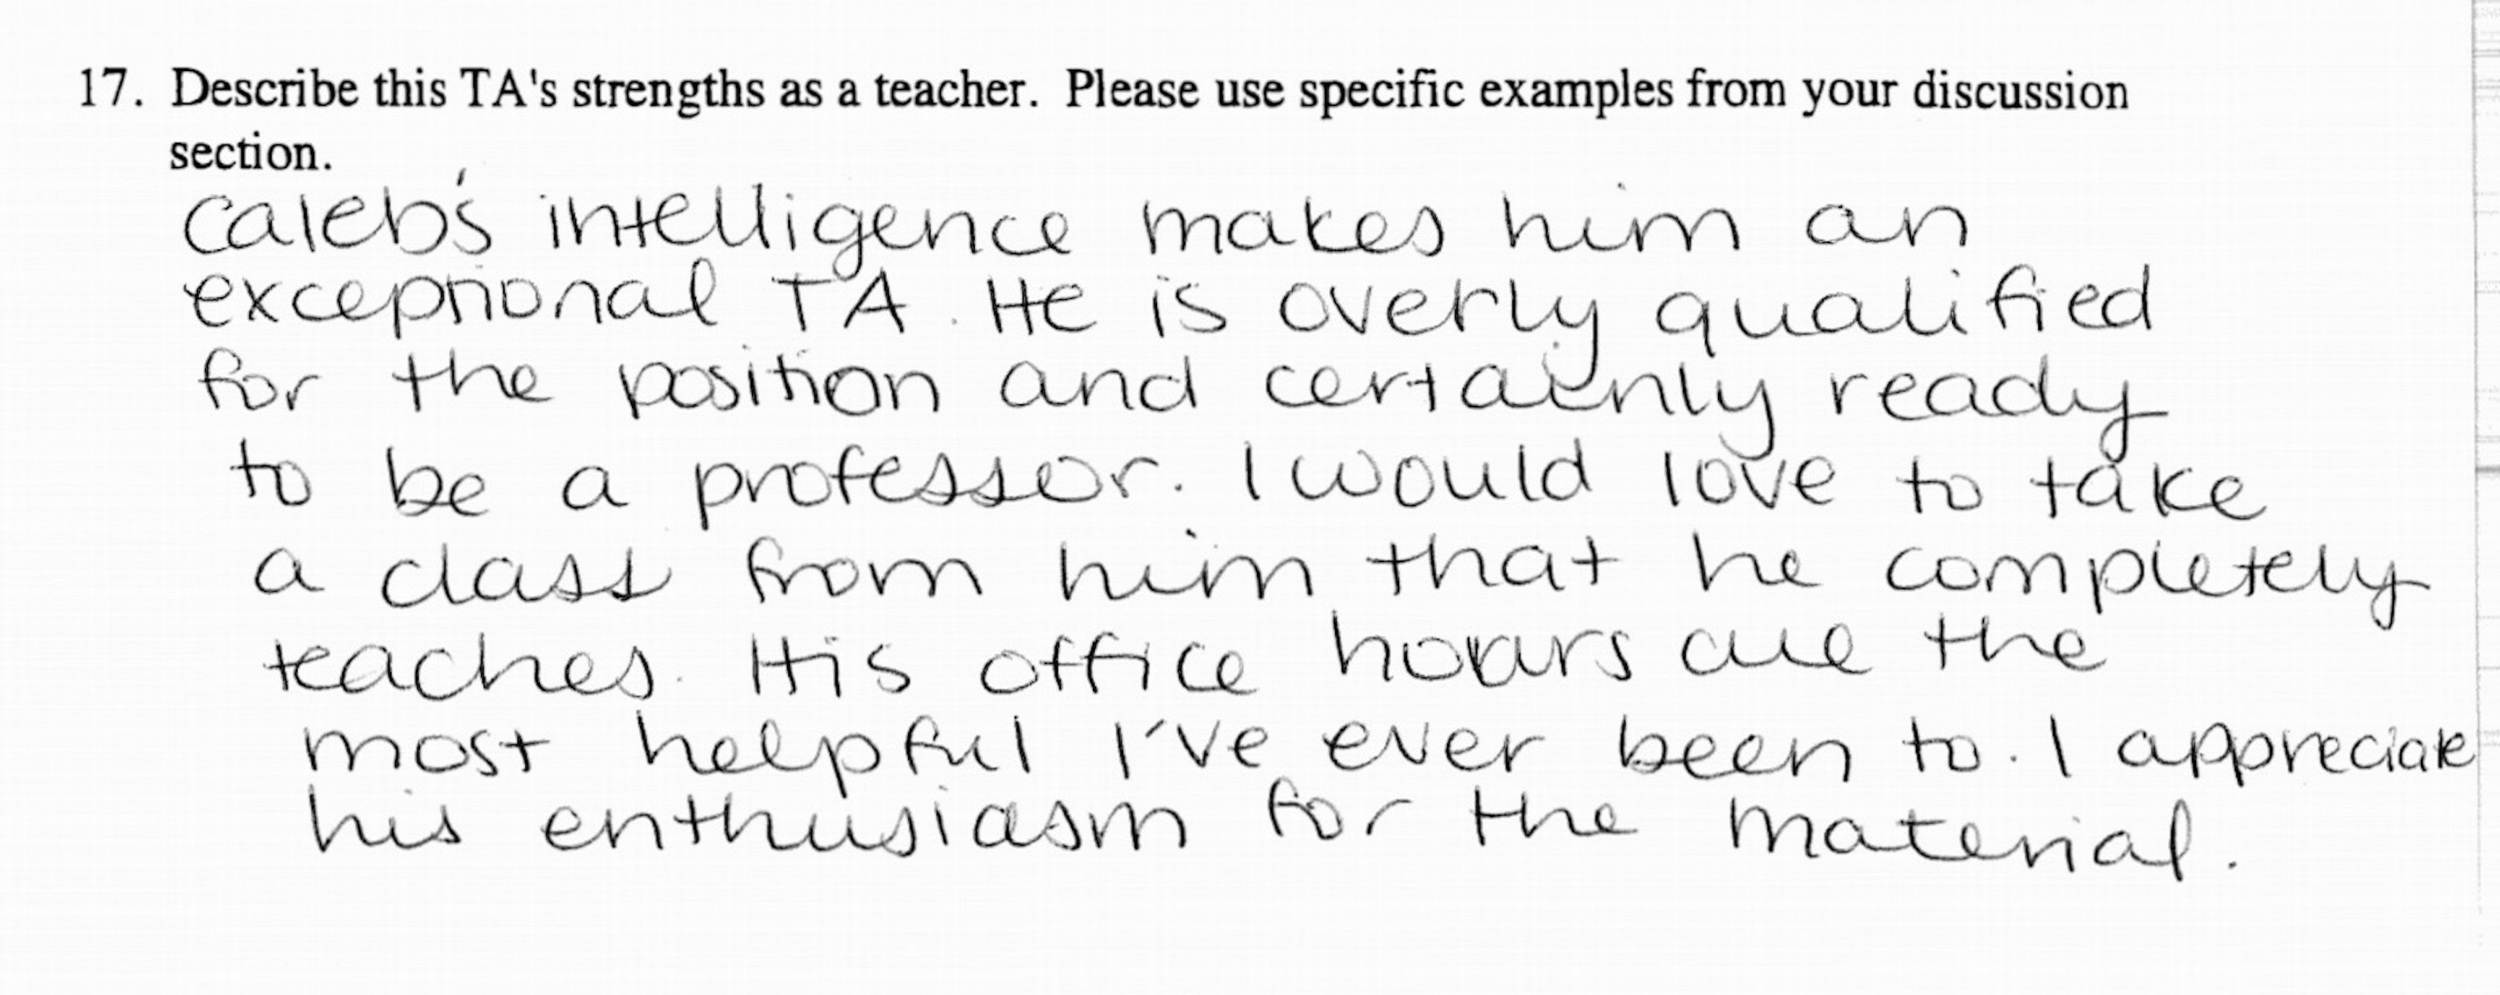 17. Describe this TA's strengths as a teacher. Please use specific examples from your discussion
section.
Caleb's intelligence makes him an
exceptional TA. He is overly qualified
for the position and certainly ready
to be a professor. I would love to take
a class from him that he completely
teaches. His office hours are the
most helpful I've ever been to. I appreciate
his enthusiasm for the material.